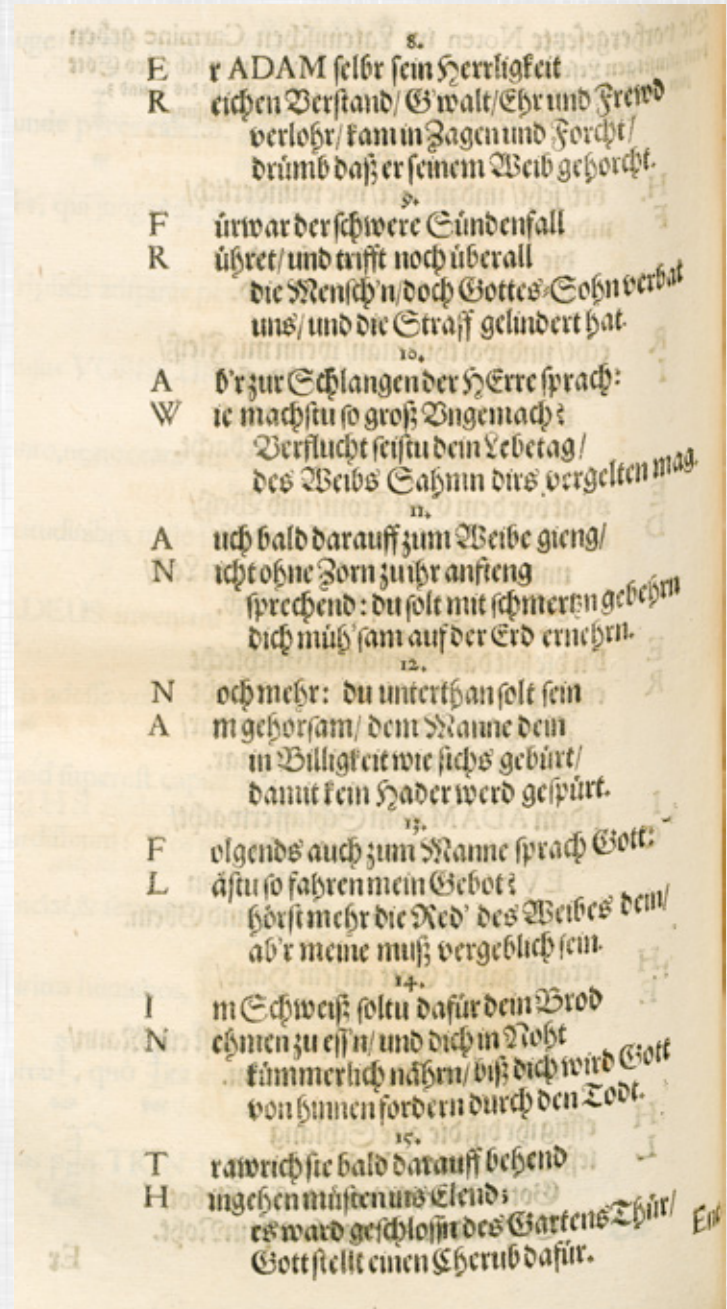 8.
E r ADAM selbr sein Herrligkeit
R eichen Verstand/ G'walt/ Ehr und Frewd
verlohr/ kam in Zagen und Forcht/
drümb daß er seinem Weib gehorcht.
9.
F ürwar der schwere Sündenfall
R ühret/ und trifft noch überall
die Mensch'n/ doch Gottes-Sohn verbat
uns/ und die Straff gelindert hat.
10.
A b'r zur Schlangen der HErre sprach:
W ie machstu so groß Ungemach?
Verflucht seistu dein Lebetag/
des Weibs Sahm dirs vergelten mag.
11.
A uch bald darauff zum Weibe gieng/
N icht ohne Zorn zu ihr anfieng
sprechend: du solt mit schmertzn gebehrn
dich müh'sam auf der Erd ernehrn.
12.
N och mehr: du unterthan solt sein
A m gehorsam/ dem Manne dein
in Billigkeit wie sichs gebürt/
damit kein Hader werd gespürt.
13.
F olgends auch zum Manne sprach Gott:
L ästu so fahren mein Gebot?
hörst mehr die Red' des Weibes dein/
ab'r meine muß vergeblich sein.
14.
I m Schweiß soltu dafür dein Brod
N ehmen zu ess'n/ und dich in Noht
kümmerlich nährn/ biß dich wird Gott
von hinnen fordern durch den Todt.
15.
T rawrich sie bald darauff behend
H ingehen müsten ins Elend;
es ward geschlossn des Gartens Thür/
Gott stellt einen Cherub dafür.